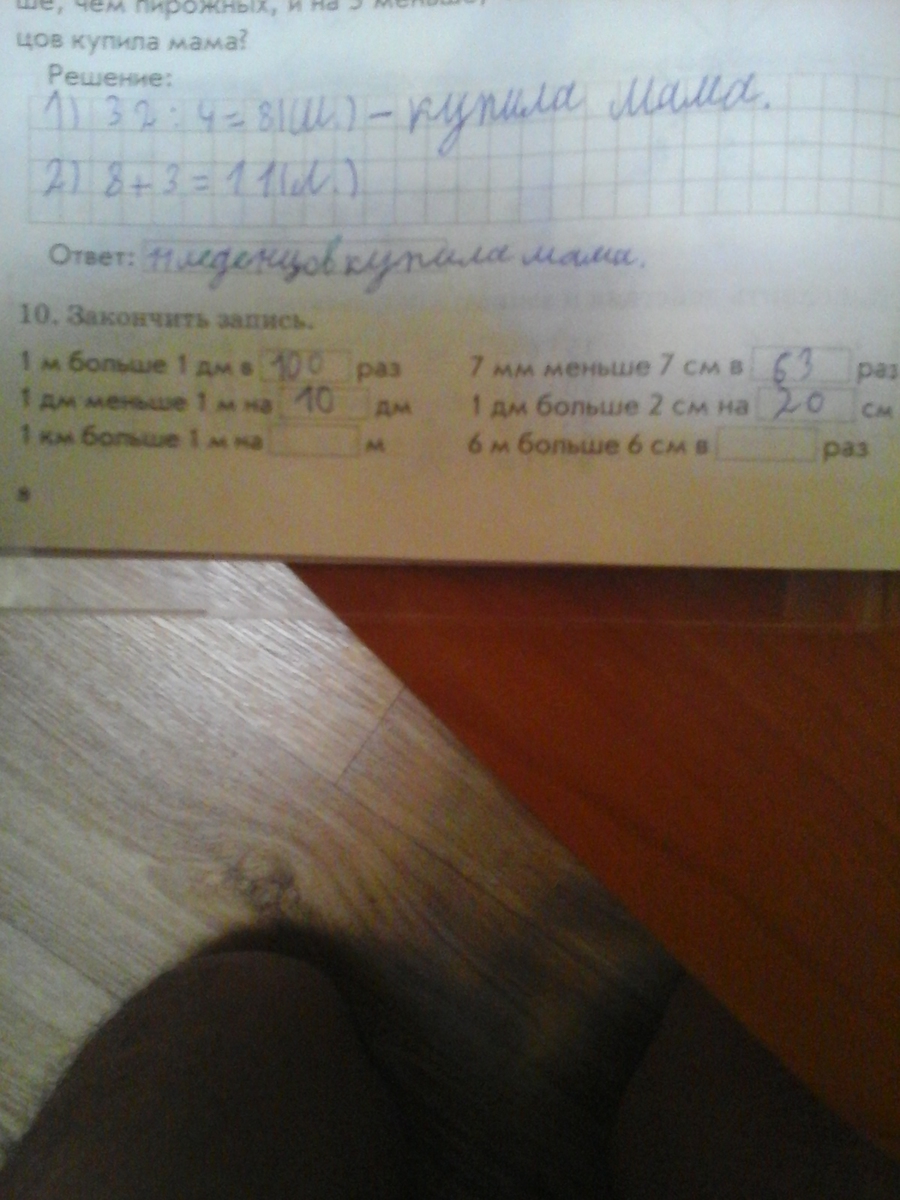 ше, чем пирожных, и на 3 меньше,
цов купила мама?
Решение:
1) 32 : 4 = 8(Ш.) – купила мама.
2) 8 + 3 = 11(л.)
Ответ: 11 леденцов купила мама.
10. Закончить запись.
1 м больше 1 дм в 100 раз
7 мм меньше 7 см в 63 раз
1 дм меньше 1 м на 10 дм
1 дм больше 2 см на 20 см
1 км больше 1 м на м
6 м больше 6 см в раз
8